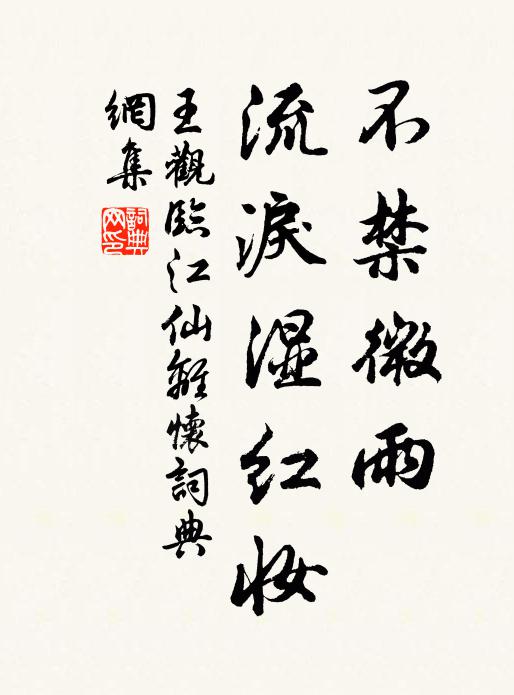 不禁微雨
流淚湿红妆
王觀臨江仙離懷詞典
網集
詞典网印